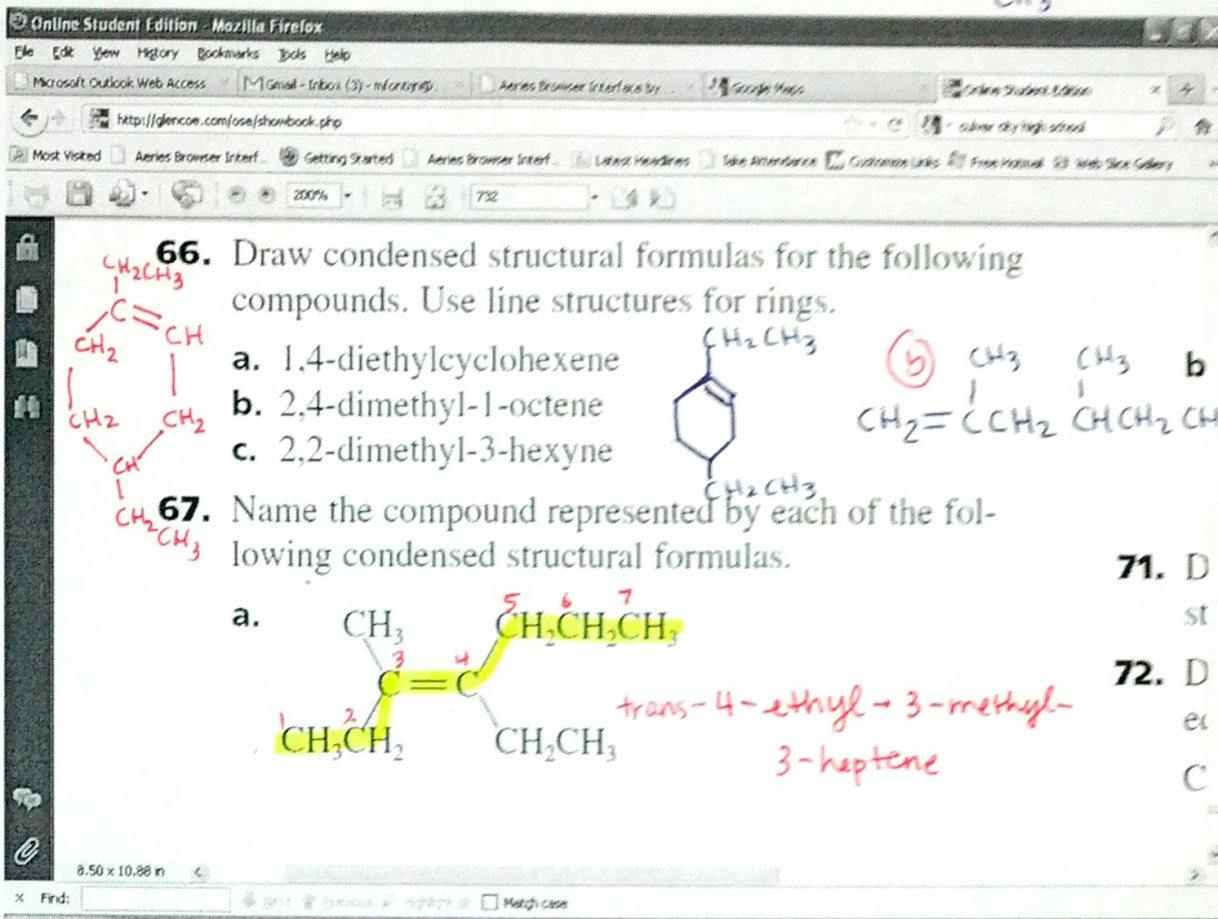 CH3
Online Student Edition - Mozilla Firefox
File Edit View History Bookmarks Tools Help
Microsoft Outlook Web Access Gmail - Inbox (3) - Aeries Browser Interface by ... Google Maps Online Student Edition
http://glencoe.com/ose/showbook.php culver city high school
Most Visited Aeries Browser Interf... Getting Started Aeries Browser Interf... Latest Headlines Take Attendance Customize Links Free Hotmail Web Slice Gallery
200% 732
66. Draw condensed structural formulas for the following
compounds. Use line structures for rings.
a. 1,4-diethylcyclohexene
b. 2,4-dimethyl-1-octene
c. 2,2-dimethyl-3-hexyne
CH2CH3
C=CH
CH2
CH2 CH2
CH
CH2
CH3
CH2CH3
CH2CH3
b CH3 CH3 b
CH2=CCH2 CHCH2 CH
67. Name the compound represented by each of the fol-
lowing condensed structural formulas.
a. CH₃ CH₂CH₂CH₃
5 6 7
3 4
C=C
1 2
CH₃CH₂ CH₂CH₃
trans-4-ethyl-3-methyl-
3-heptene
71. D
st
72. D
C
8.50 x 10.88 in
x Find: Match case